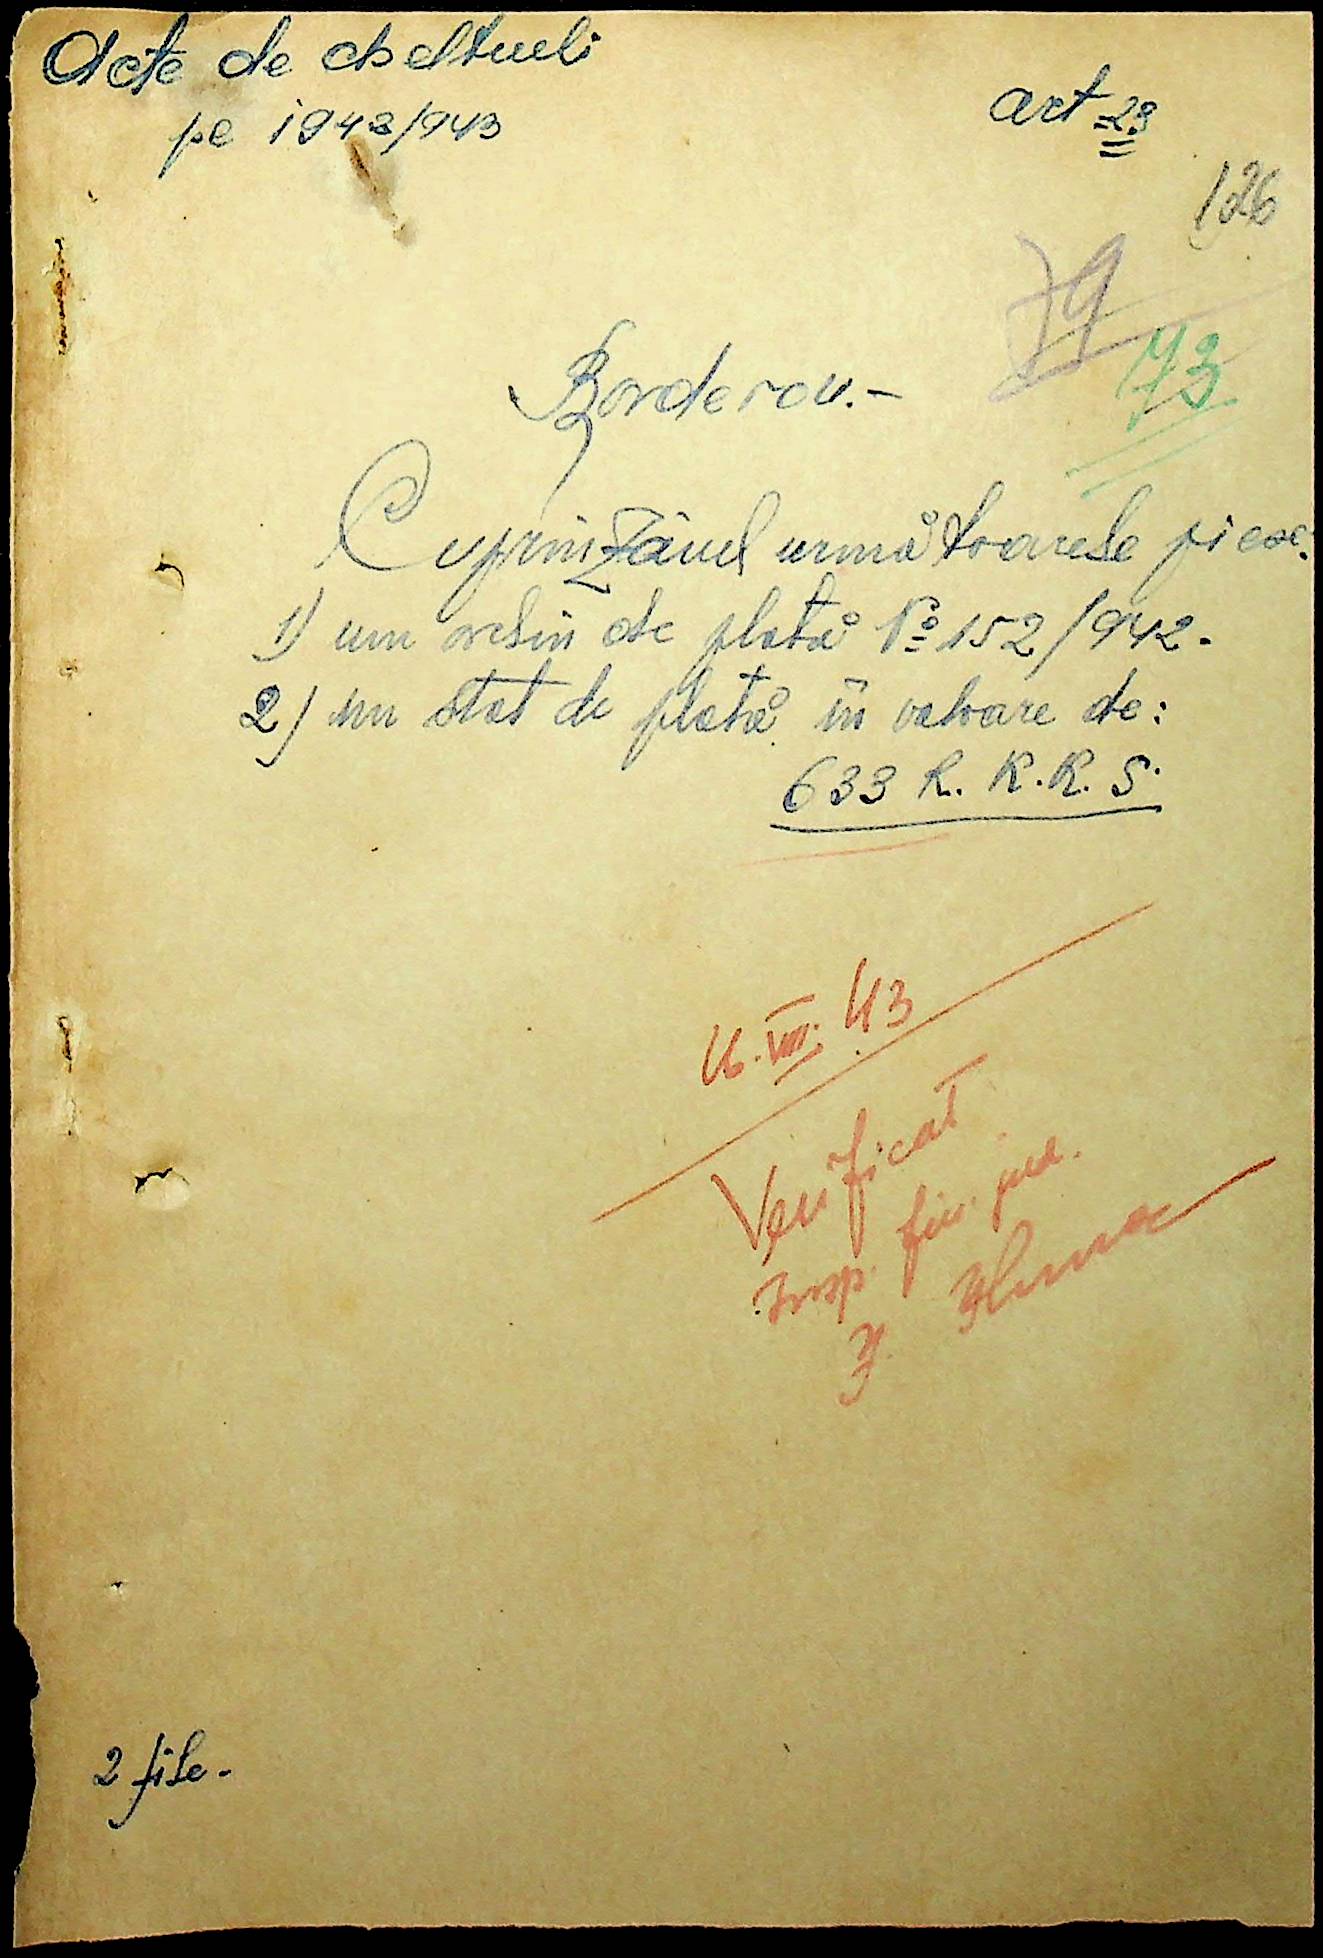 Acte de cheltueli
pe 1942/943
art 23
126
79
73
Borderou.-
Cuprinzând următoarele piese.
1) un ordin de plată No 152/942.
2) un stat de plată în valoare de:
633 R. K. R. S.
16. VIII. 43
Verificat
Insp. fin. jud.
2 file.